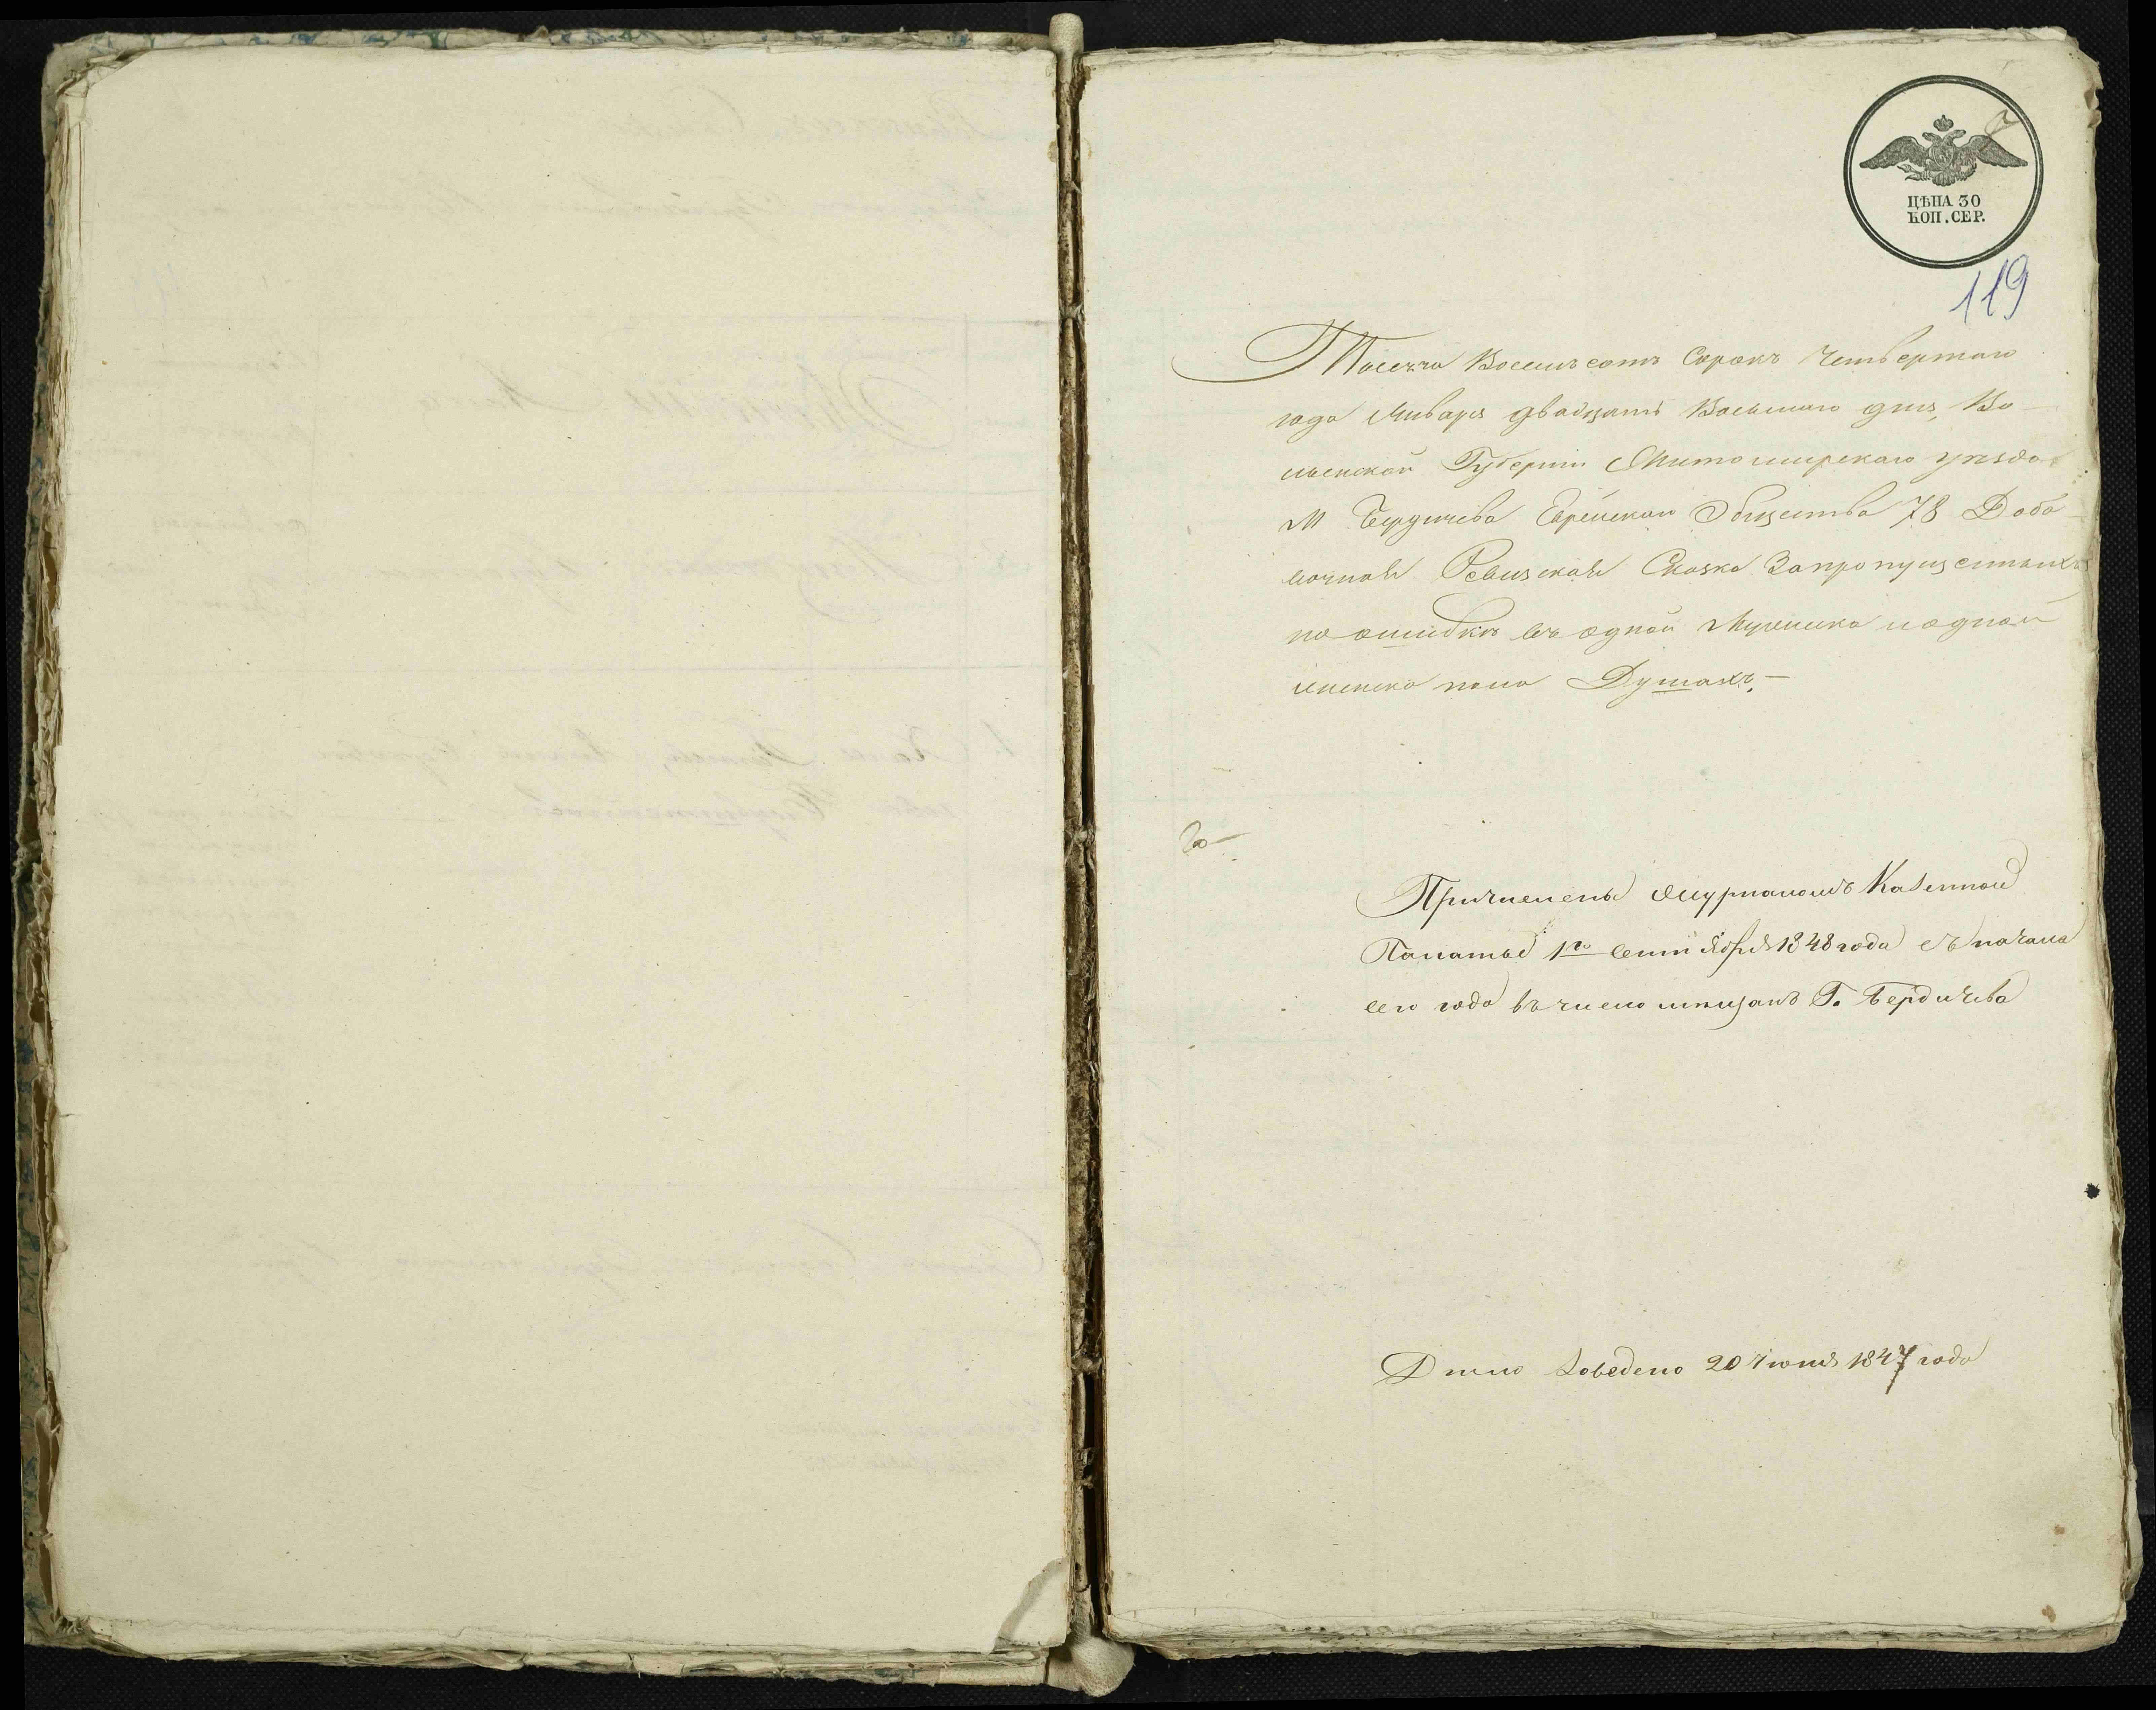 ЦѢНА 30
КОП. СЕР.
119
Тысяча Восемьсотъ Сорокъ Четвертаго
года Января двадцать Восьмаго дня, Во-
лынской Губернии Житомирскаго уѣзда
М Бердичева Еврейскаго Общества 78 Доба-
вочная Ревизская Сказка Запропущенныхъ
по ошибкѣ въ одной Мужеска и одной
женска пола Душахъ,—
Причислены Журналомъ Казенной
Палаты 1го сентября 1848 года съ начала
сего года въ число мѣщанъ Г. Бердичева
Дѣло заведено 20 Июня 1847 года